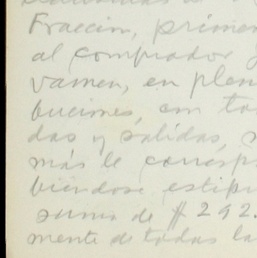 Fraccion, primer
al comprador
vamen, en plen
buciones, con to
das y salidas,
más le corresp
biéndose estipu
suma de $ 292.
mente de todas la